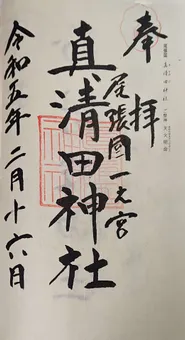 奉拝
尾張國一之宮
真清田神社
令和五年二月十六日